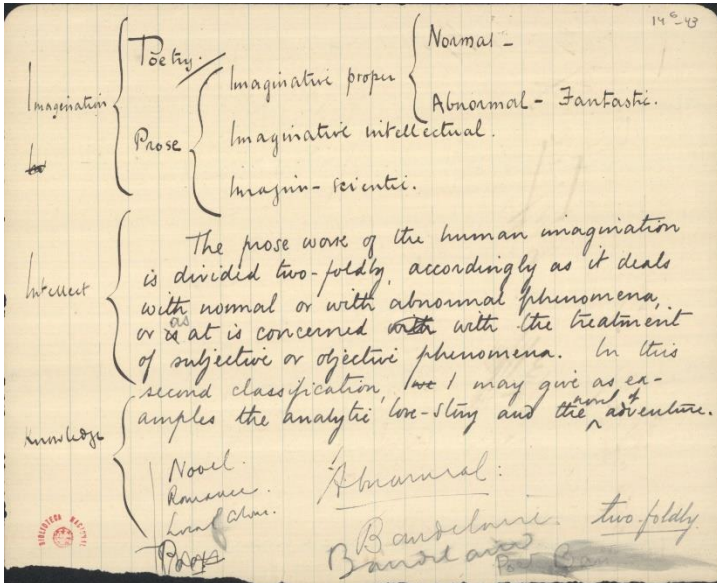 14⁶-43
Poetry.
Normal -
Imagination
Imaginative proper
Abnormal - Fantastic.
Prose
Imaginative intellectual.
Imagin - scientic.
The prose work of the human imagination
Intellect
is divided two-foldly, accordingly as it deals
with normal or with abnormal phenomena,
or as at is concerned with the treatment
of subjective or objective phenomena. In this
second classification, I may give as ex-
amples the analytic love-story and the novel of adventure.
Knowledge
Novel.
Romance.
Local
Abnormal:
Baudelaire.
two-foldly
Baudelaire
BIBLIOTECA NACIONAL